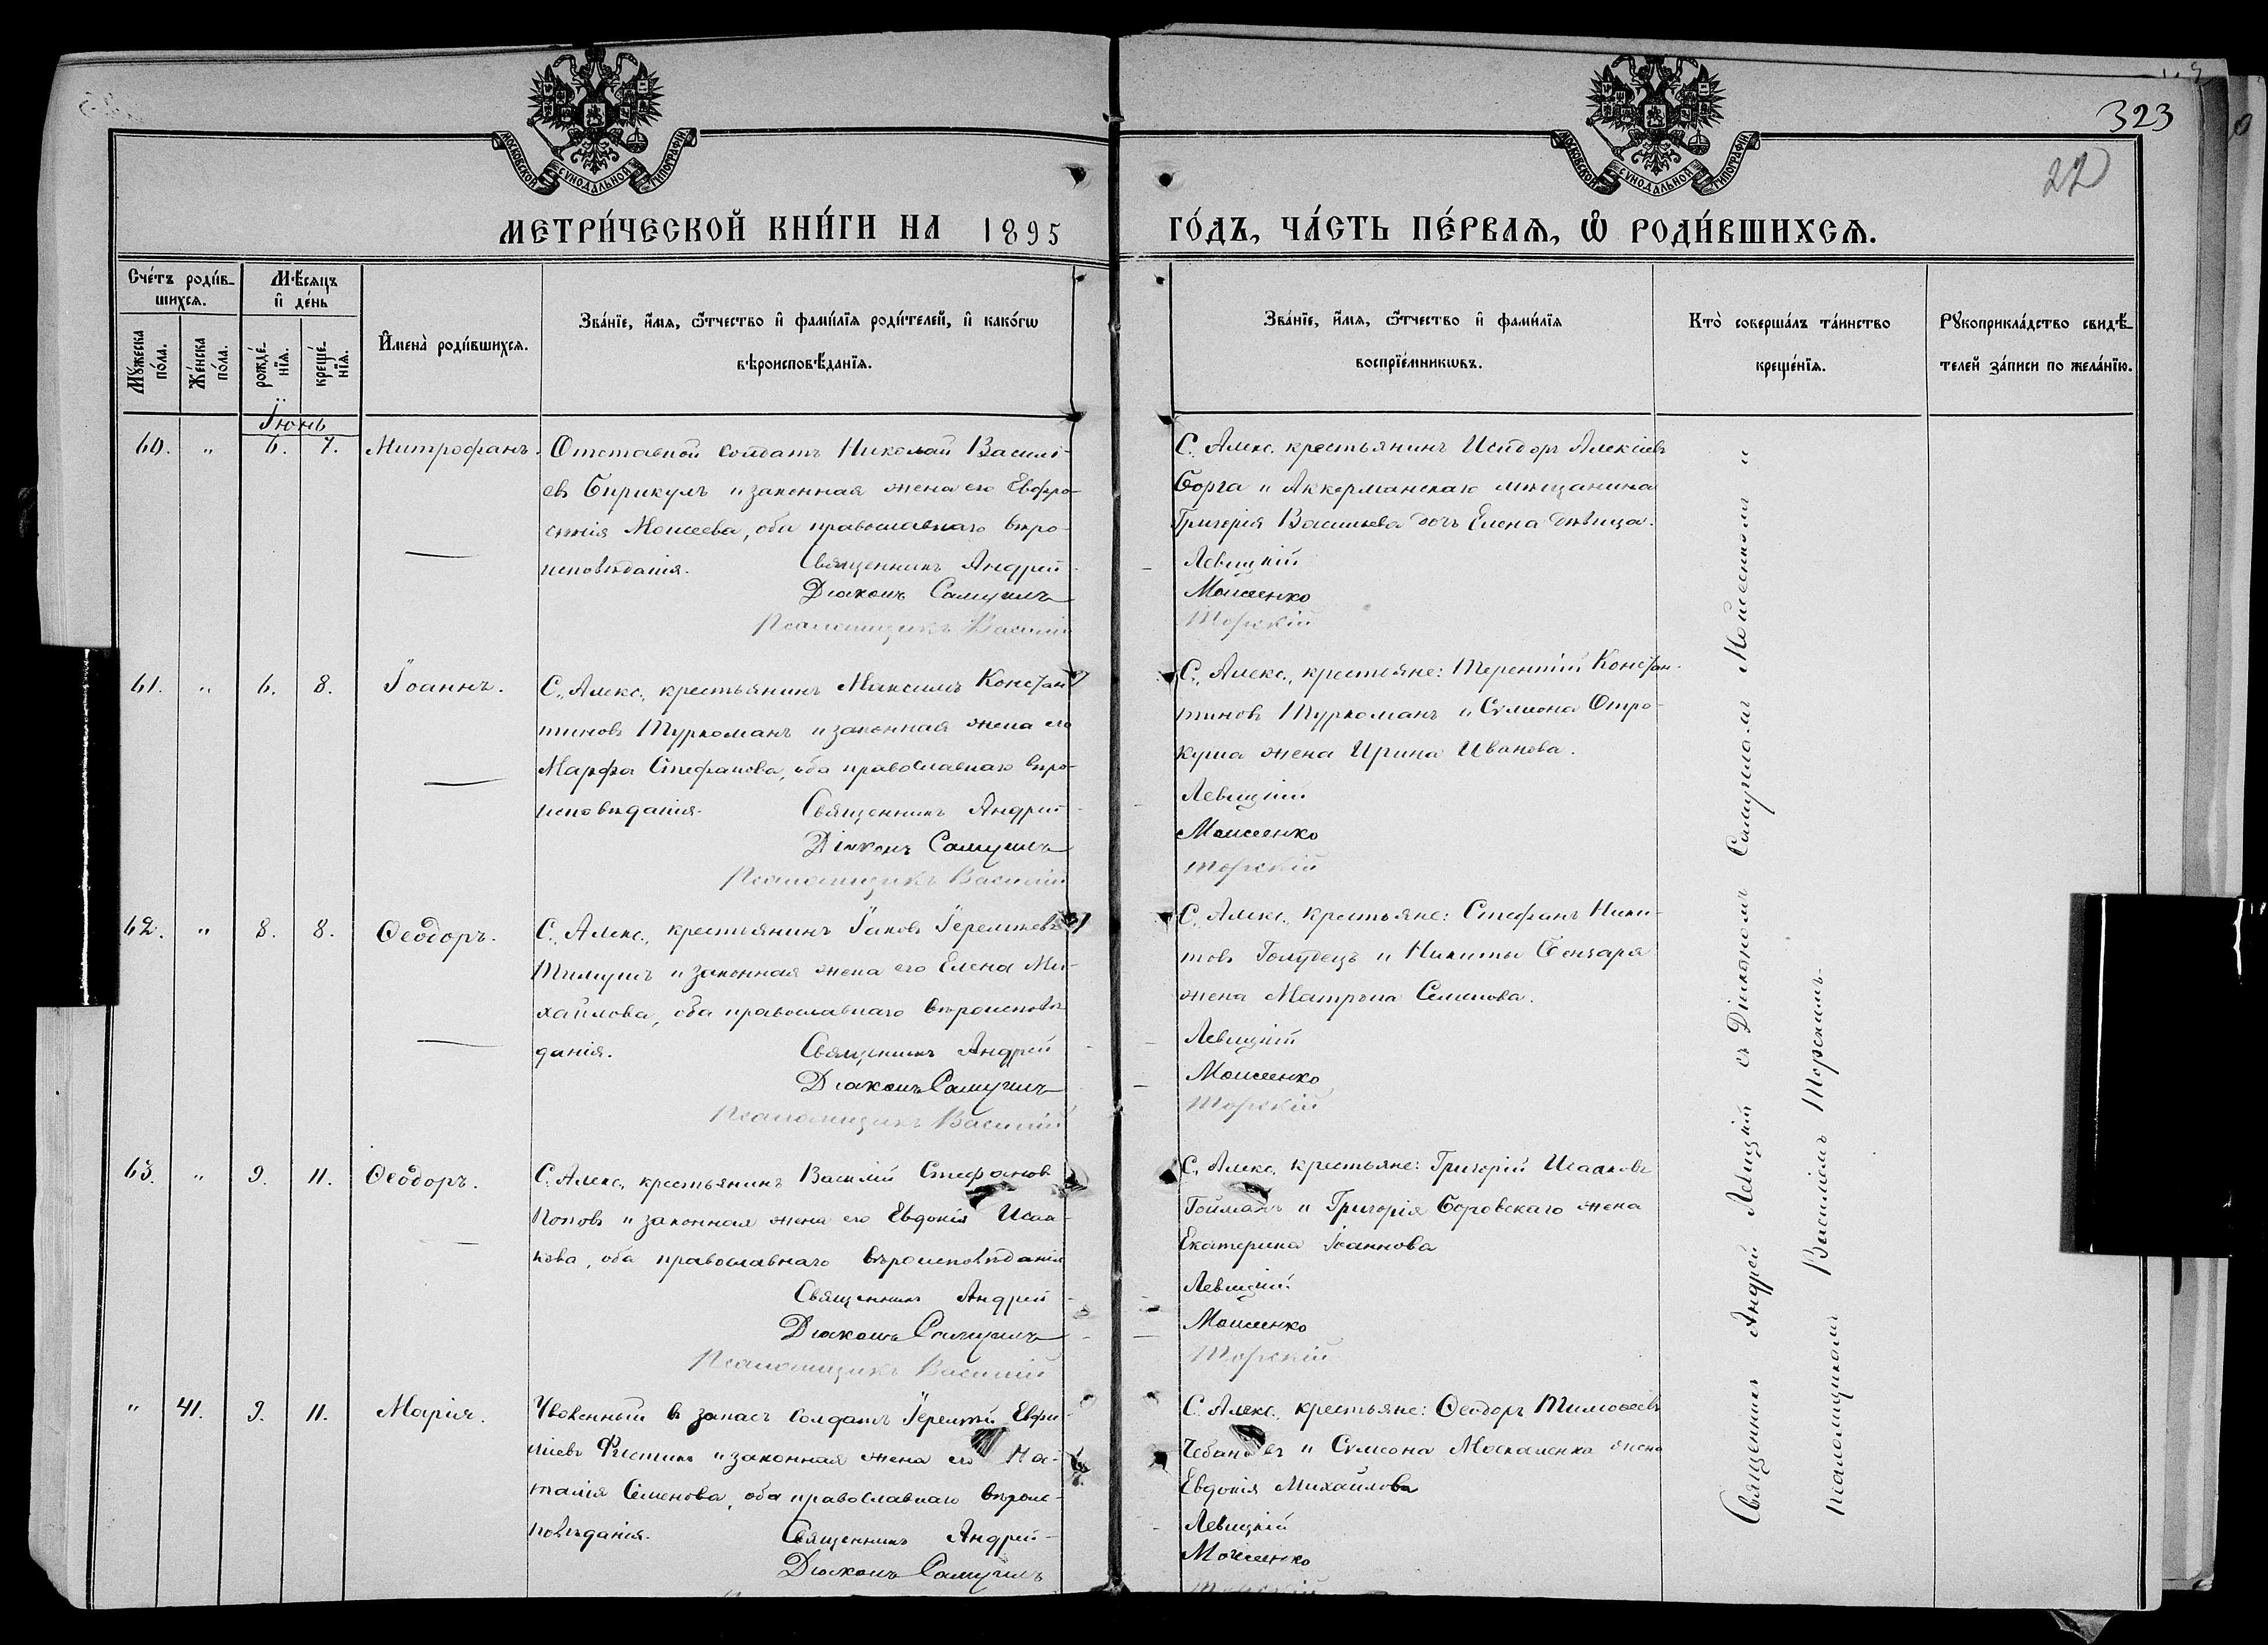 323
22
МОСКОВСКОЙ СѴНОДАЛЬНОЙ ТИПОГРАФІИ
МОСКОВСКОЙ СѴНОДАЛЬНОЙ ТИПОГРАФІИ
МЕТРИ́ЧЕСКОЙ КНИ́ГИ НА 1895 ГО́ДЪ, ЧА́СТЬ ПЕ́РВАѦ, Ѡ҆ РОДИ́ВШИХСѦ.
Сче́тъ роди́в-
шихсѧ.
Мꙋ́жеска по́ла.
Же́нска по́ла.
Мѣ́сѧцъ
и҆ де́нь
рожде́-
нїѧ.
креще́-
нїѧ.
И҆мена̀ роди́вшихсѧ.
Зва́нїе, и҆́мѧ, ѻ҆́тчество и҆ фами́лїѧ роди́телей, и҆ како́гѡ
вѣроисповѣ́данїѧ.
Зва́нїе, и҆́мѧ, ѻ҆́тчество и҆ фами́лїѧ
воспрїе́мникѡвъ.
Кто̀ соверша́лъ та́инство
креще́нїѧ.
Рꙋкоприкла́дство свидѣ́-
телей за́писи по жела́нїю.
Іюнь
60. " 6. 7. Митрофанъ.
Отставной солдатъ Николай Василі-
евъ Бирикулъ и законная жена его Евфро-
синія Моисеева, оба православнаго вѣро-
исповѣданія. Священникъ Андрей
Діаконъ Самуилъ
Псаломщикъ Василій
С. Алекс. крестьянинъ Исидоръ Алексіевъ
Борга и Аккерманскаго мѣщанина
Григорія Васильева дочь Елена дѣвица.
Левицкій
Моисеенко
Торскій
61. " 6. 8. Іоаннъ.
С. Алекс., крестьянинъ Максимъ Констан
тиновъ Туркоманъ и законная жена его
Марфа Стефанова, оба православнаго вѣро-
исповѣданія. Священникъ Андрей
Діаконъ Самуилъ
Псаломщикъ Василій
С. Алекс., крестьяне: Терентій Констан-
тиновъ Туркоманъ и Сѵмеона Отро-
куша жена Ирина Иванова.
Левицкій
Моисеенко
Торскій
62. " 8. 8. Ѳеодоръ.
С. Алекс., крестьянинъ Іаковъ Іереміевъ
и законная жена его Елена Ми-
хайлова, оба православнаго вѣроисповѣ
данія. Священникъ Андрей
Діаконъ Самуилъ
Псаломщикъ Василій
С. Алекс. крестьяне: Стефанъ Ники-
товъ Голубецъ и Никиты Бензаря
жена Матрона Семенова.
Левицкій
Моисеенко
Торскій
63. " 9. 11. Ѳеодоръ.
С. Алекс., крестьянинъ Василій Стефановъ
Поповъ и законная жена его Евдокія Исаа-
кова, оба православнаго вѣроисповѣданія
Священникъ Андрей
Діаконъ Самуилъ
Псаломщикъ Василій
С. Алекс. крестьяне: Григорій Исааковъ
Гойманъ и Григорія Боровскаго жена
Екатерина Іоаннова
Левицкій
Моисеенко
Торскій
" 41. 9. 11. Марія.
Уволенный въ запасъ солдатъ Іеремій Евфи-
міевъ и законная жена его На-
талія Семенова, оба православнаго вѣроис-
повѣданія. Священникъ Андрей
Діаконъ Самуилъ
С. Алекс., крестьяне: Ѳеодоръ Тимоѳеевъ
Чебановъ и Сѵмеона Москаленка жена
Евдокія Михайлова
Левицкій
Моисеенко
Торскій
Священникъ Андрей Левицкій съ Діакономъ Самуиломъ Моисеенкомъ и
псаломщикомъ Василіемъ Торскимъ.